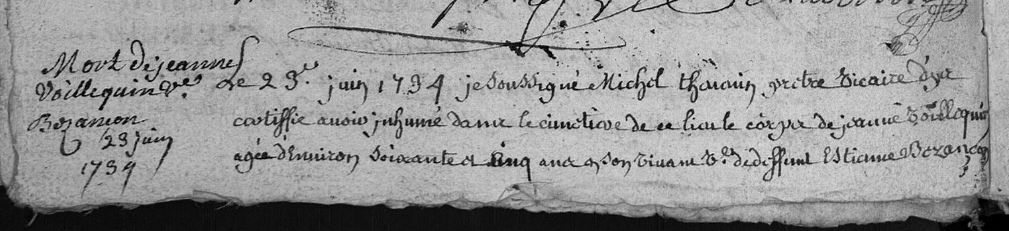 Mort de jeanne
Voillequin ve
Bezancon
23 juin
1734
Le 23e juin 1734 je soussigné Michel thouvain pretre vicaire d'yce
certiffie avoir inhumé dans le cimetiere de ce lieu le corps de jeanne Voillequin
agée d'Environ soixante et cinq ans en son vivant ve. de deffunt Estienne Bezancon